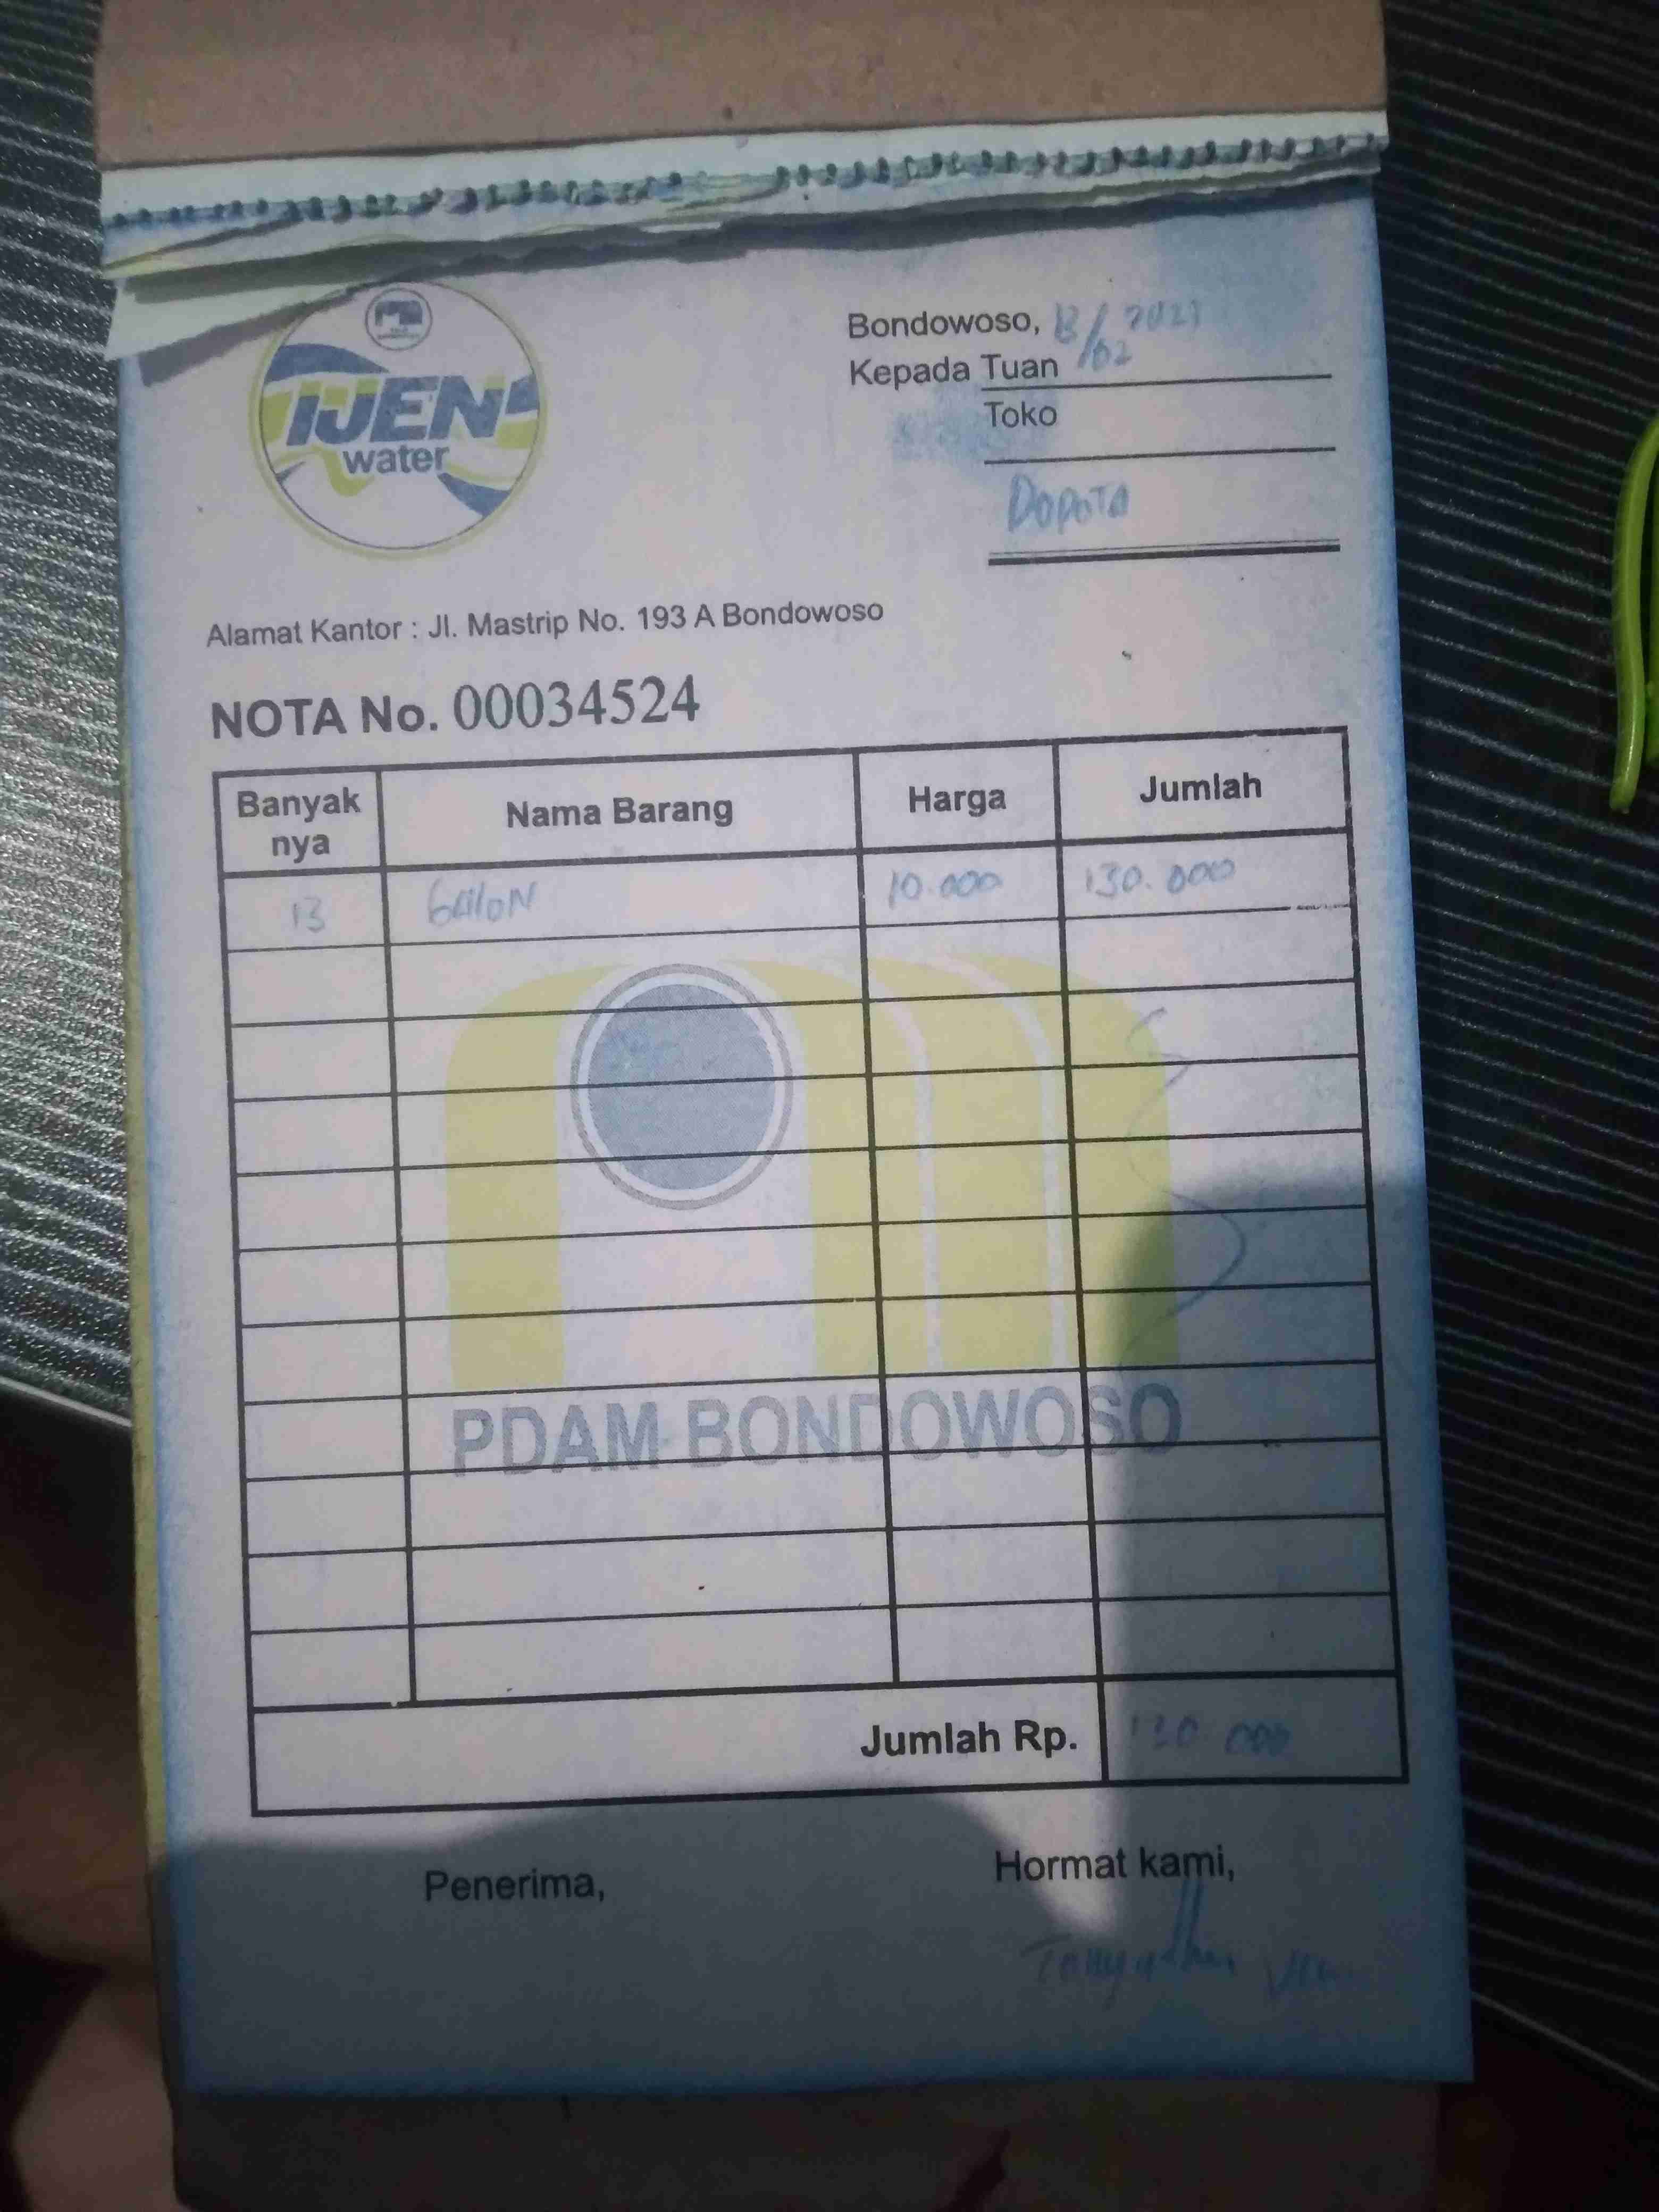 IJEN
water
Bondowoso, 13/02 2023
Kepada Tuan
Toko
DOPOTA
Alamat Kantor : Jl. Mastrip No. 193 A Bondowoso
NOTA No. 00034524
Banyak nya Nama Barang Harga Jumlah
13 GAllON 10.000 130.000
PDAM BONDOWOSO
Jumlah Rp. 130 000
Penerima, Hormat kami,